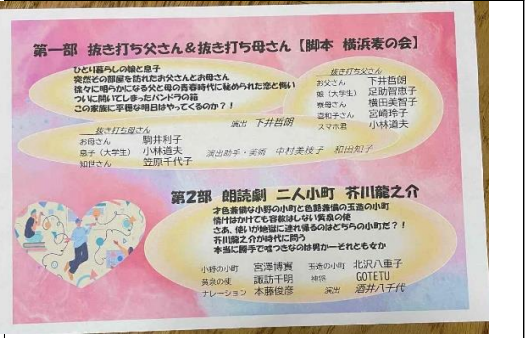 第一部 抜き打ち父さん＆抜き打ち母さん【脚本 横浜麦の会】
ひとり暮らしの娘と息子
突然その部屋を訪れたお父さんとお母さん
徐々に明らかになる父と母の青春時代に秘められた恋と悔い
ついに開いてしまったパンドラの箱
この家族に平穏な明日はやってくるのか？！
演出 下井哲朗
抜き打ち父さん
お父さん 下井哲朗
娘（大学生） 足助智恵子
寮母さん 横田美智子
宮崎玲子
スマホ君 小林道夫
抜き打ち母さん
お母さん 駒井利子
息子（大学生） 小林道夫
知世さん 笠原千代子
演出助手・美術 中村美枝子 和田知子
第2部 朗読劇 二人小町 芥川龍之介
才色兼備な小野の小町と色艶兼備の玉造の小町
情けはかけても容赦はしない黄泉の使
さあ、使いが地獄に連れ帰るのはどちらの小町だ？！
芥川龍之介が時代に問う
本当に勝手で嘘つきなのは男か－それとも女か
小野の小町 宮澤博實 玉造の小町 北沢八重子
黄泉の使 諏訪千明 神将 GOTETU
ナレーション 本藤俊彦 演出 酒井八千代